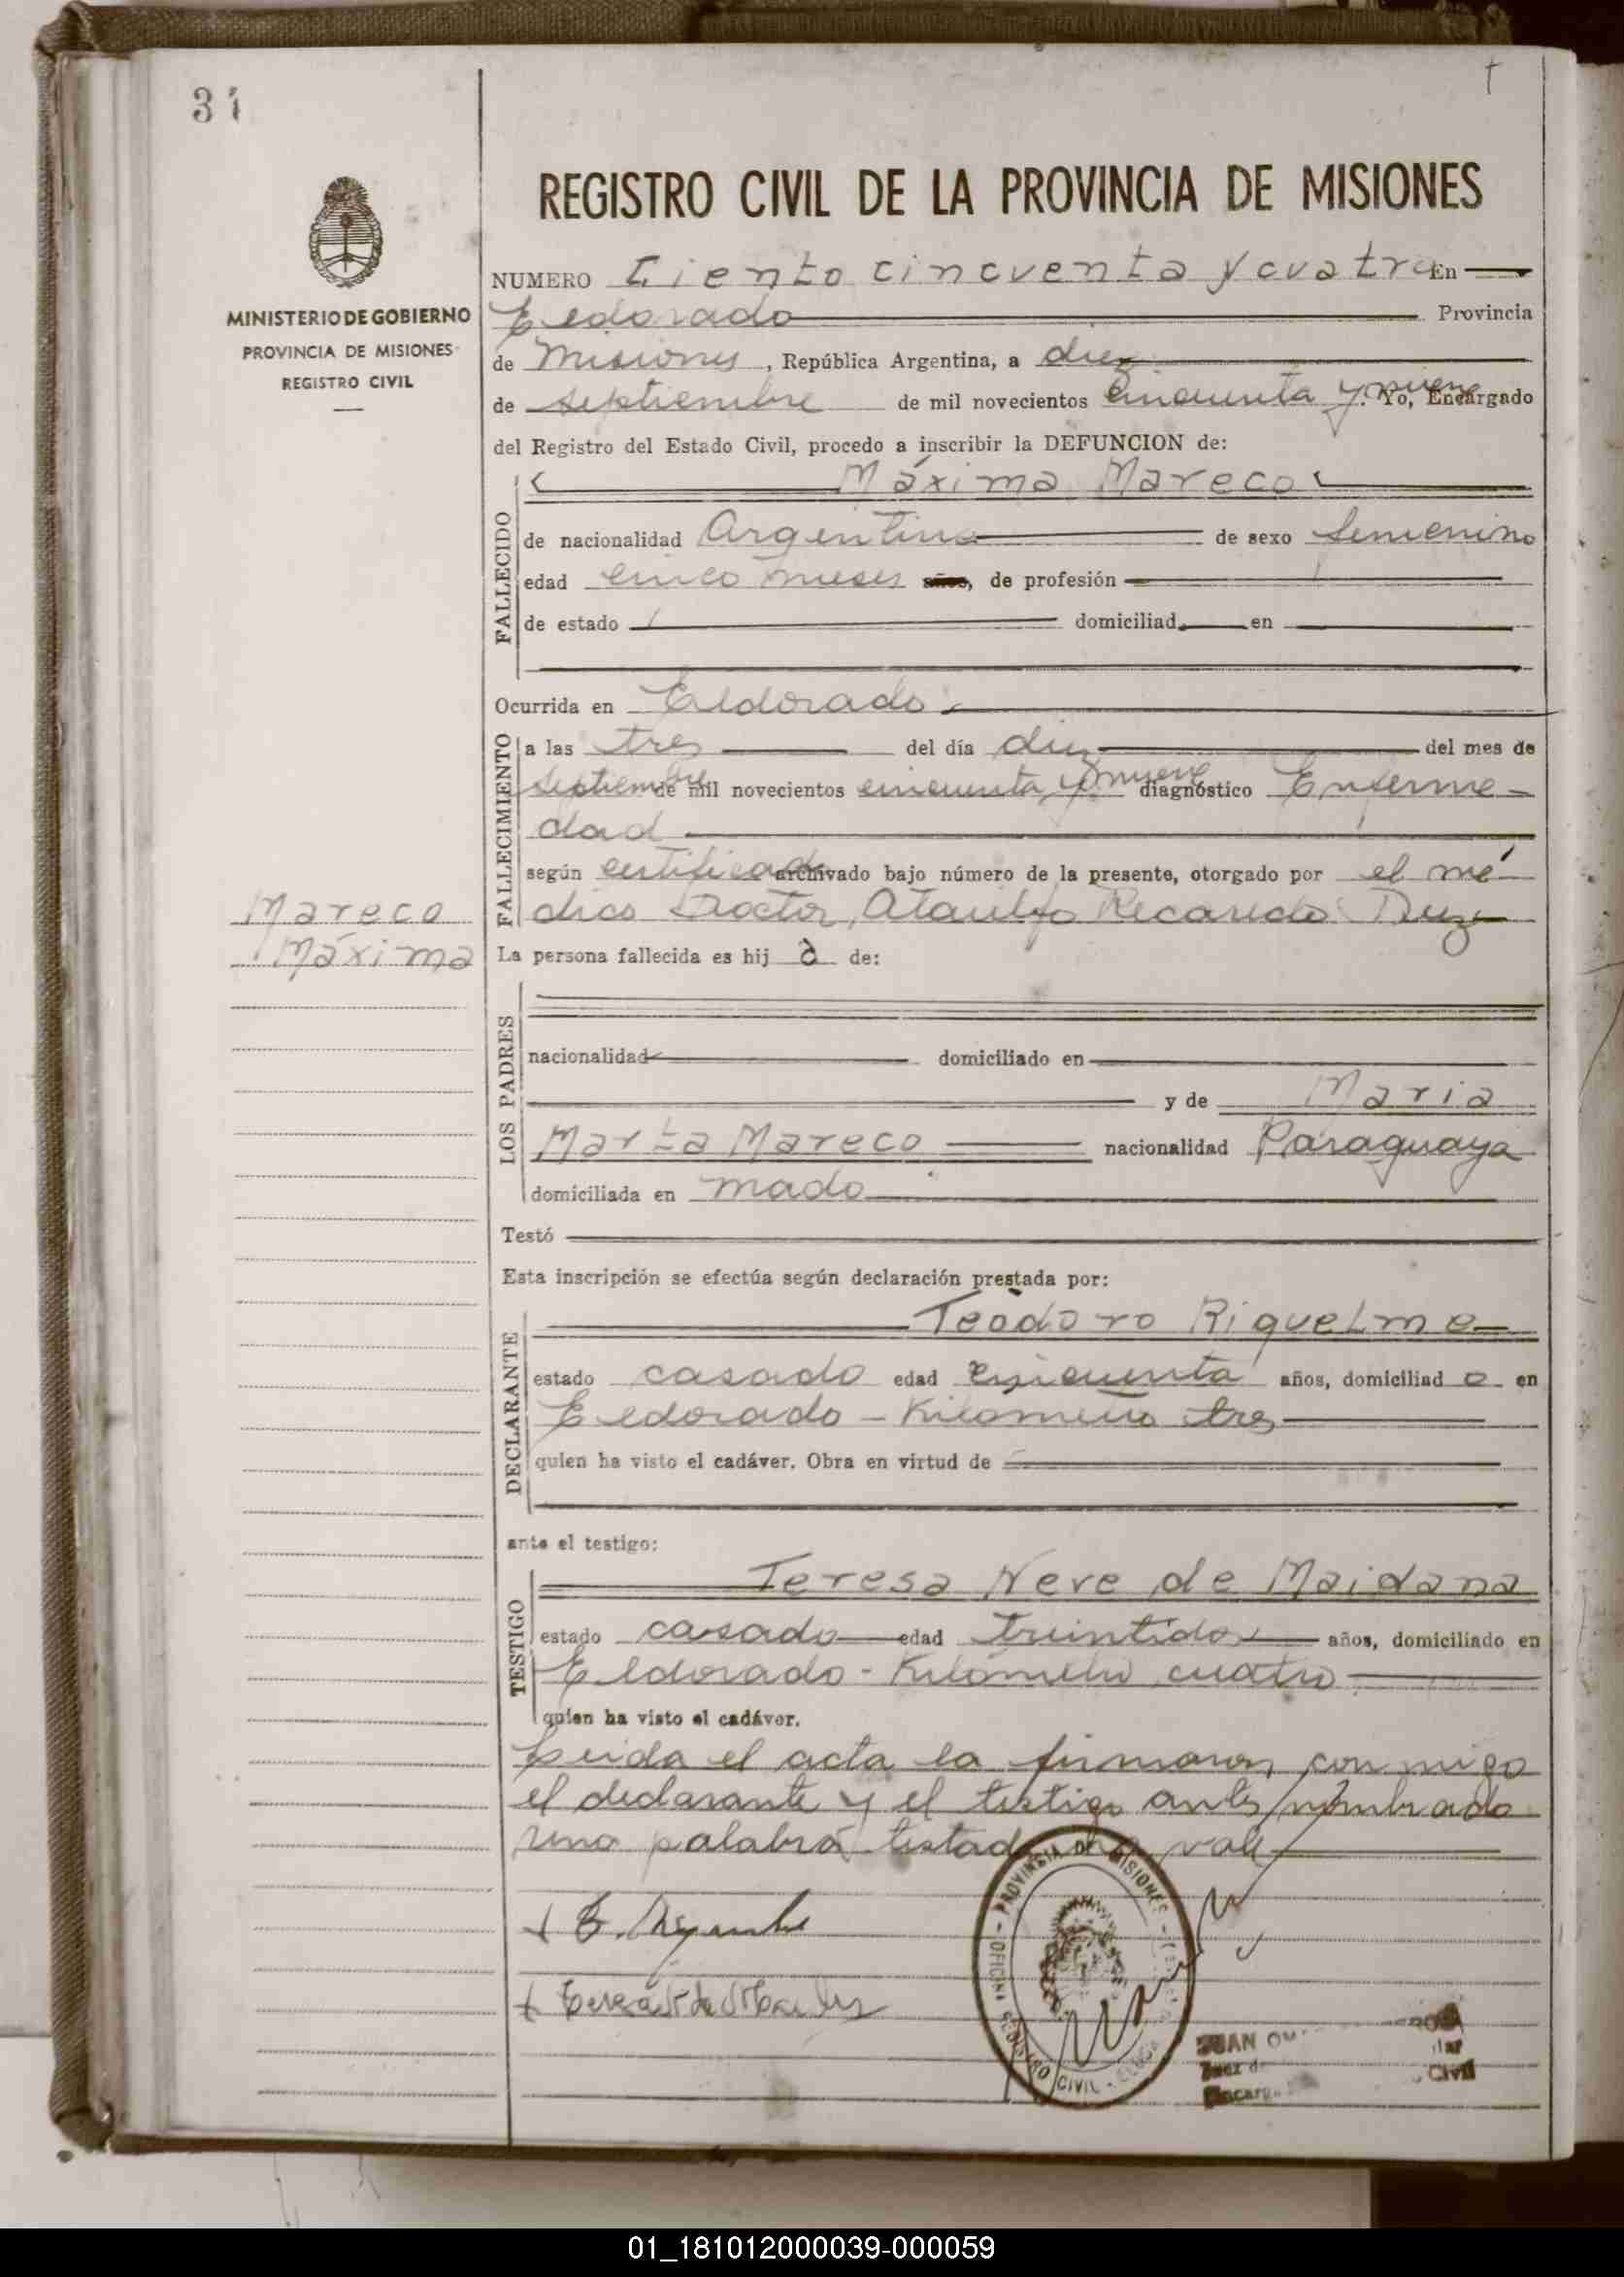 31
†
MINISTERIO DE GOBIERNO
PROVINCIA DE MISIONES
REGISTRO CIVIL
REGISTRO CIVIL DE LA PROVINCIA DE MISIONES
NUMERO Ciento cincuenta y cuatro En
Eldorado Provincia
de Misiones, República Argentina, a diez
de septiembre de mil novecientos cincuenta y nueve. Yo, Encargado
del Registro del Estado Civil, procedo a inscribir la DEFUNCION de:
Máxima Mareco
FALLECIDO
de nacionalidad Argentina de sexo femenino
edad cinco meses años, de profesión
de estado domiciliad en
Ocurrida en Eldorado
FALLECIMIENTO
a las tres del día diez del mes de
septiembre de mil novecientos cincuenta y nueve diagnóstico Enferme-
dad
según certificado archivado bajo número de la presente, otorgado por el mé-
dico Doctor, Ataulfo Recaredo
Mareco
Máxima
La persona fallecida es hij a de:
LOS PADRES
nacionalidad domiciliado en
y de Maria
Marta Mareco nacionalidad Paraguaya
domiciliada en mado
Testó
Esta inscripción se efectúa según declaración prestada por:
DECLARANTE
Teodoro Riquelme
estado casado edad cincuenta años, domiciliad o en
Eldorado - Kilometro tres
quien ha visto el cadáver. Obra en virtud de
ante el testigo:
TESTIGO
Teresa Neve de Maidana
estado casado edad treintidos años, domiciliado en
Eldorado - Kilómetro cuatro
quien ha visto el cadáver.
Leida el acta la firmaron conmigo
el declarante y el testigo antes nombrado
una palabra testada no vale
PROVINCIA DE MISIONES
OFICINA REGISTRO CIVIL
JUAN
Juez
Encarg
Civil
01_181012000039-000059